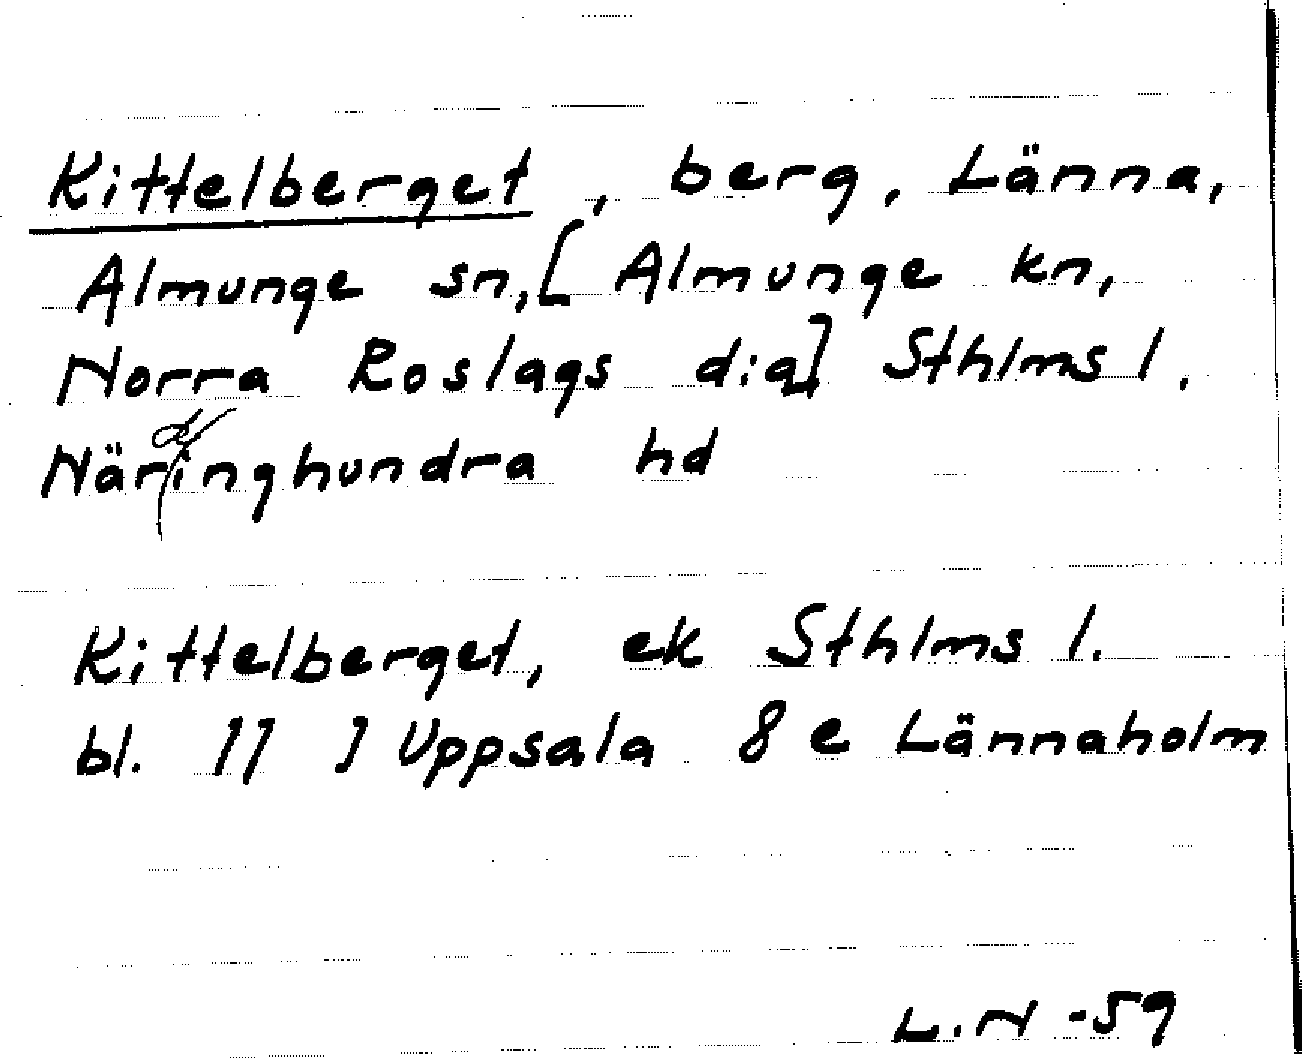 Kittelberget, berg, Länna,
Almunge sn, [Almunge kn,
Norra Roslags dia] Sthlms l.
Närdinghundra hd
Kittelberget, ek Sthlms l.
bl. 11 I Uppsala 8 e Lännaholm
L.N -59